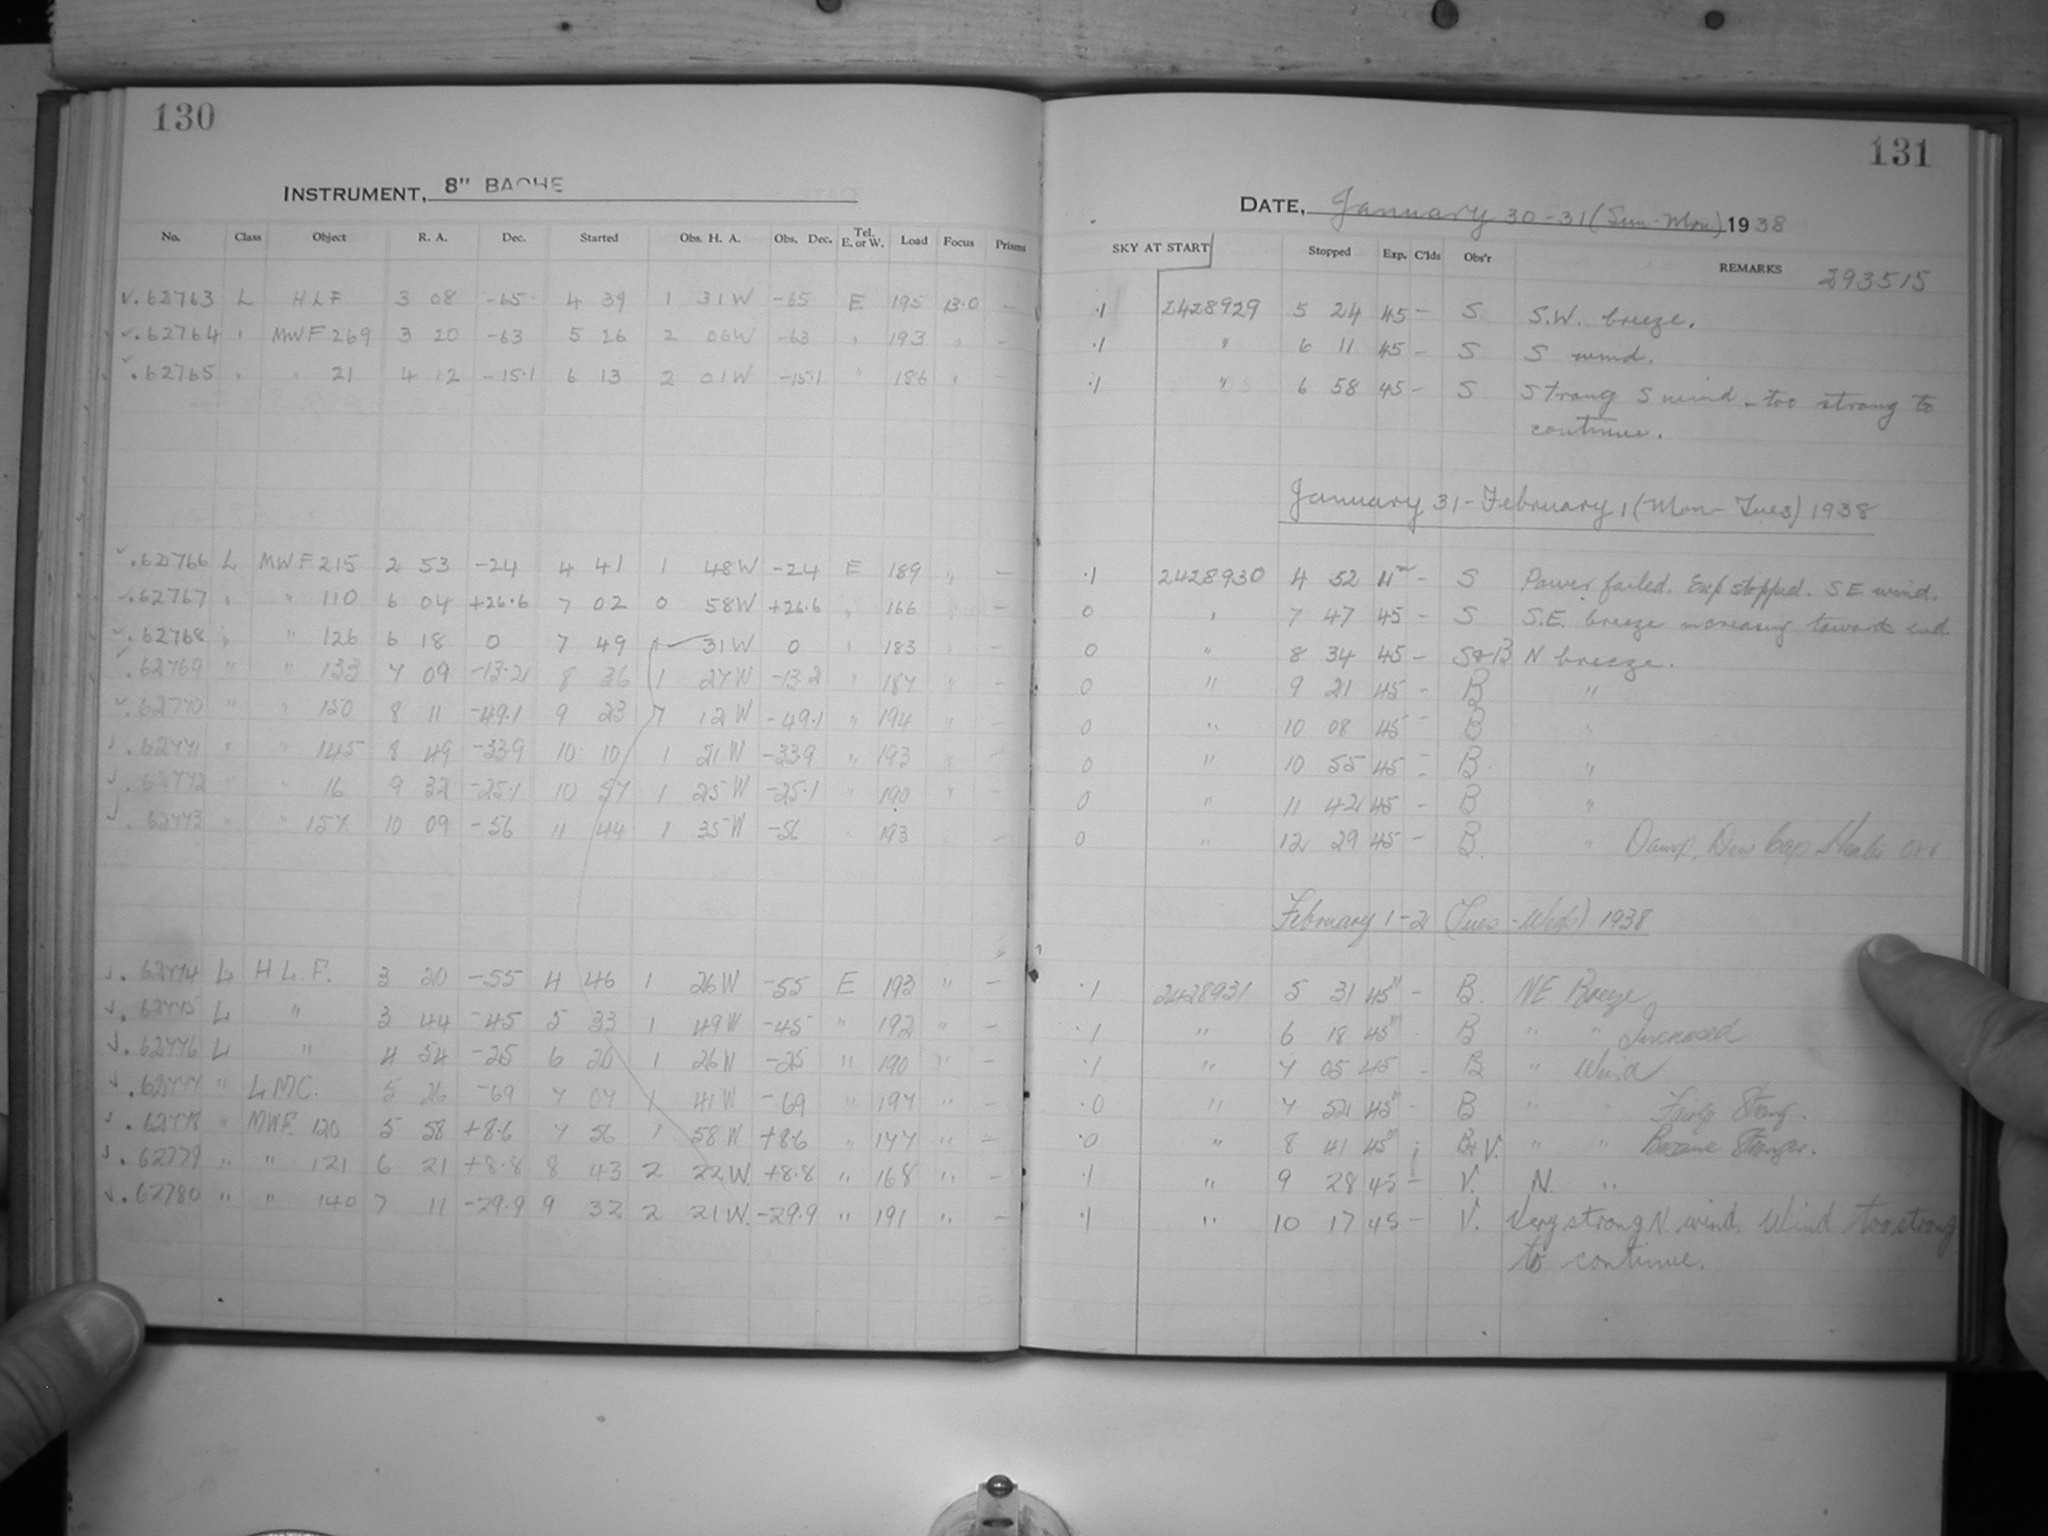 130
INSTRUMENT, 8" BACHE
No. Class Object R. A. Dec. Started Obs. H. A. Obs. Dec. Tel. E. or W. Load Focus Prisms
√.62763 L HLF 3 08 -65 4 39 1 31W -65 E 195 13.0 —
√.62764 " MWF 269 3 20 -63 5 26 2 06W -63 " 193 " —
√.62765 " " 21 4 12 -15.1 6 13 2 01W -15.1 " 186 " —
√.62766 L MWF 215 2 53 -24 4 41 1 48W -24 E 189 " —
√.62767 " " 110 6 04 +26.6 7 02 0 58W +26.6 " 166 " —
√.62768 " " 126 6 18 0 7 49 1 31W 0 " 183 " —
√.62769 " " 133 7 09 -13.2 8 36 1 27W -13.2 " 187 " —
√.62770 " " 150 8 11 -49.1 9 23 1 12W -49.1 " 194 " —
√.62771 " " 145 8 49 -33.9 10 10 1 21W -33.9 " 193 " —
√.62772 " " 16 9 32 -25.1 10 57 1 25W -25.1 " 190 " —
√.62773 " " 157 10 09 -56 11 44 1 35W -56 " 193 —
√.62774 L H L F. 3 20 -55 4 46 1 26W -55 E 193 " —
√.62775 L " 3 44 -45 5 33 1 49W -45 " 192 " —
√.62776 L " 4 54 -25 6 20 1 26W -25 " 190 " —
√.62777 " LMC. 5 26 -69 7 07 1 41W -69 " 197 " —
√.62778 " MWF. 120 5 58 +8.6 7 56 1 58W +8.6 " 177 " —
√.62779 " " 121 6 21 +8.8 8 43 2 22W. +8.8 " 168 " —
√.62780 " " 140 7 11 -29.9 9 32 2 21W. -29.9 " 191 " —
131
DATE, January 30-31 (Sun-Mon) 1938
SKY AT START Stopped Exp. C'lds Obs'r REMARKS 293515
.1 2428929 5 24 45 — S S.W. breeze.
.1 " 6 11 45 — S S wind.
.1 " 6 58 45 — S Strong S wind - too strong to
continue.
January 31-February 1 (Mon-Tues) 1938
.1 2428930 4 52 11m — S Power failed. Exp stopped. SE wind.
0 " 7 47 45 — S S.E. breeze increasing towards end.
0 " 8 34 45 — S&B N breeze.
0 " 9 21 45 — B "
0 " 10 08 45 — B "
0 " 10 55 45 — B. "
0 " 11 42 45 — B "
0 " 12 29 45 — B. " Damp. Dew Cap Heater on
February 1-2 (Tues-Weds) 1938
.1 2428931 5 31 45m — B. NE Breeze
.1 " 6 18 45m — B " " Increased
.1 " 7 05 45 — B " Wind
.0 " 7 52 45m — B " " Fairly Strong.
.0 " 8 41 45m B+V. " " Became Stronger.
.1 " 9 28 45 — V. N. "
.1 " 10 17 45 — V. Very strong N wind. Wind too strong
to continue.